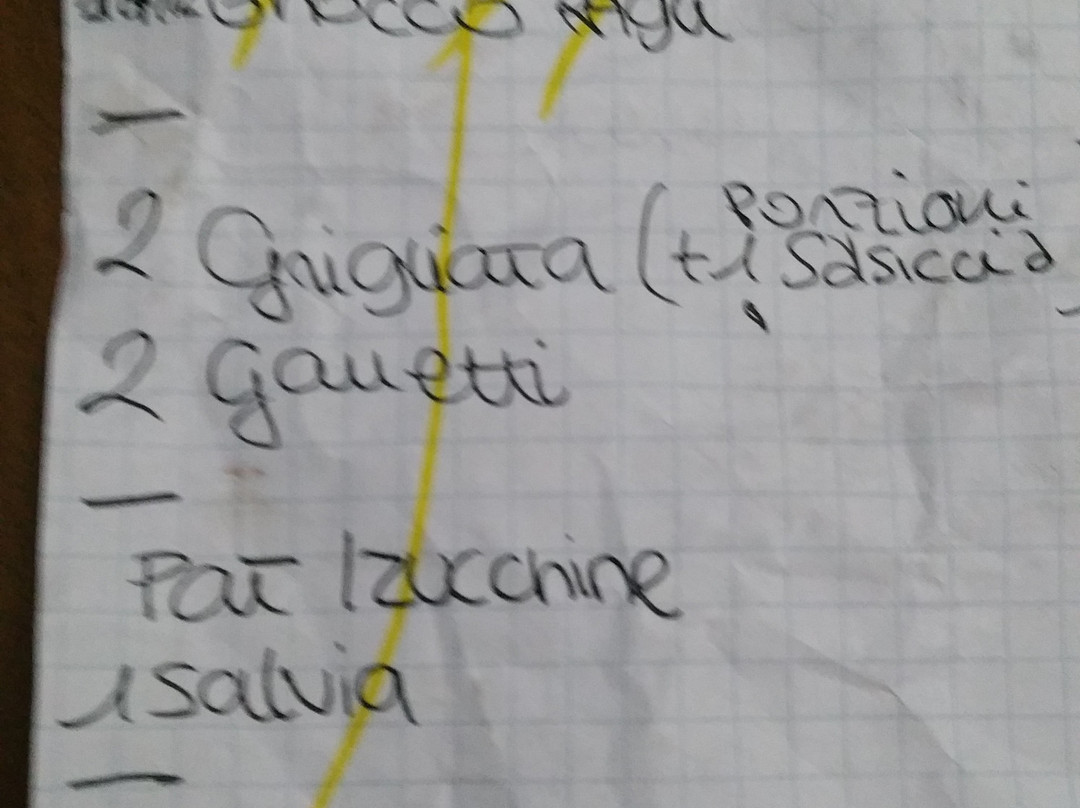 Gnocco
—
2 Grigliata (+1 porzioni Salsiccia
2 Galletti
—
Pat / zucchine
1 salvia
—